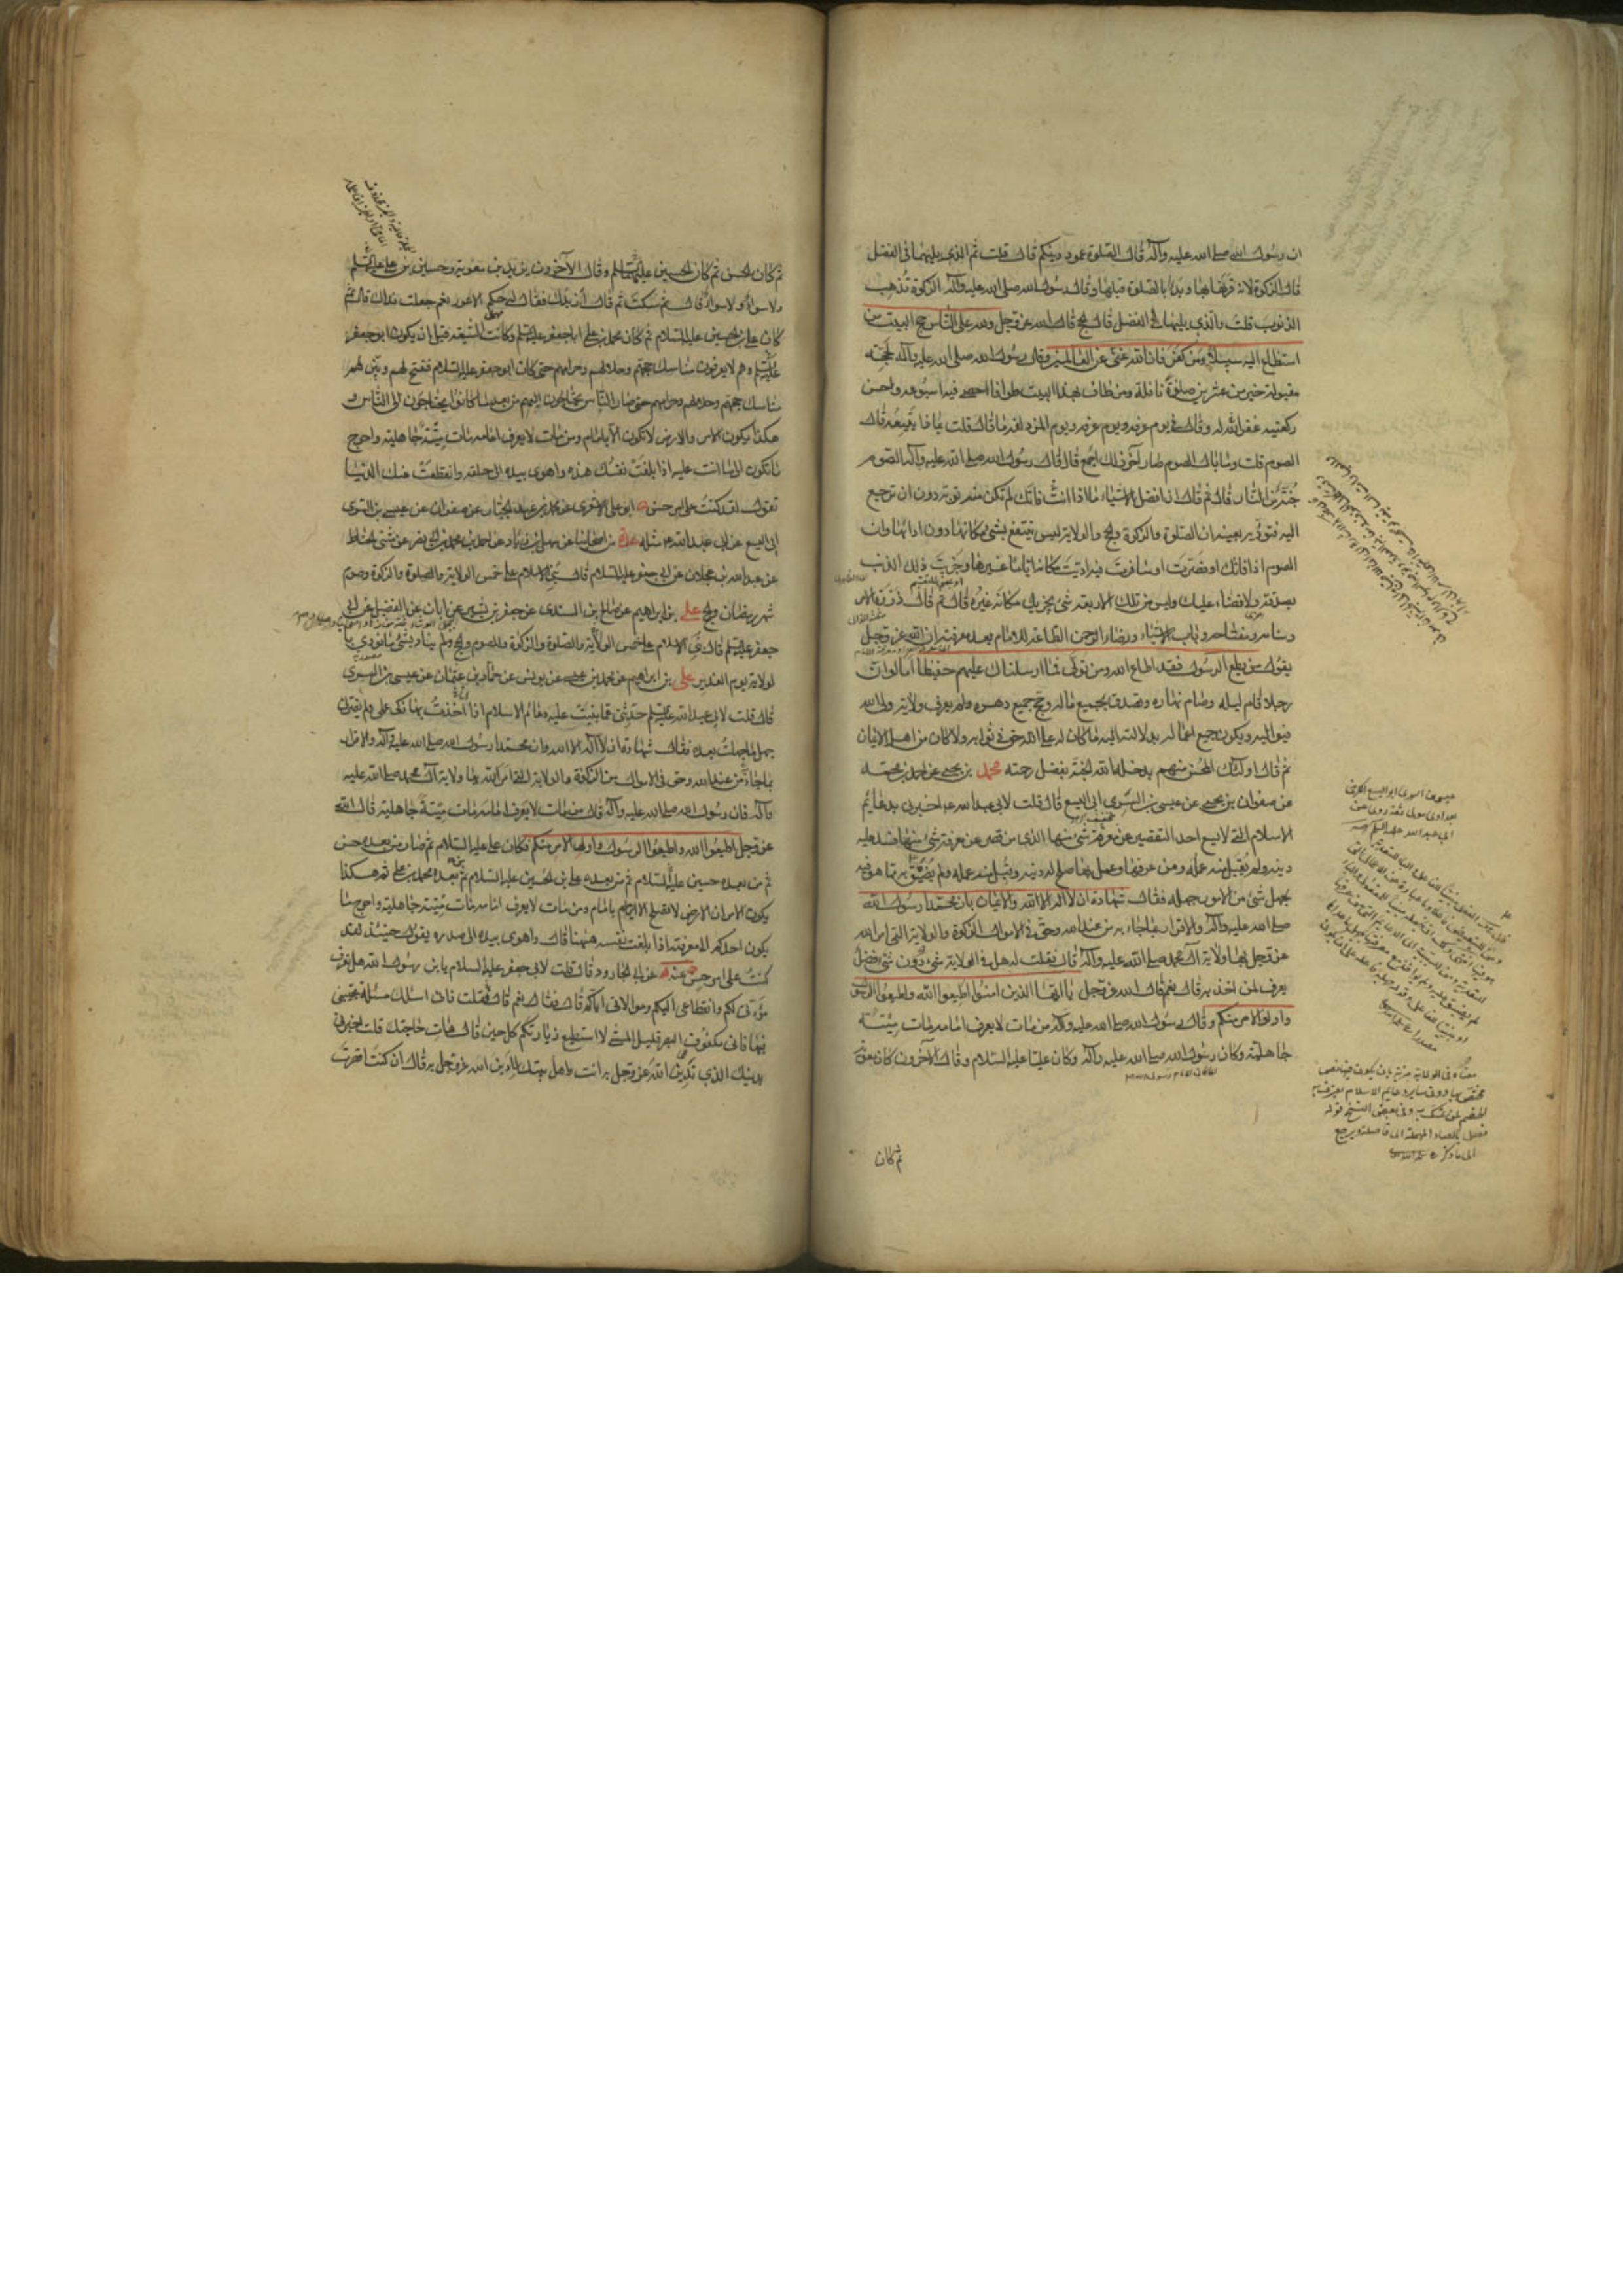 ان رسول الله صلى الله عليه وآله قال الصلوة عمود دينكم قال قلت ثم الذي يليها في الفضل
قال الزكوة لانه قرنها بها وبدأ بالصلوة قبلها وقال رسول الله صلى الله عليه وآله الزكوة تذهب
الذنوب قلت والذي يليها في الفضل قال الحج قال الله عز وجل ولله على الناس حج البيت من
استطاع اليه سبيلا ومن كفر فان الله غني عن العالمين وقال رسول الله صلى الله عليه وآله لحجة
مقبولة خير من عشرين صلوة نافلة ومن طاف بهذا البيت طوافا احصى فيه اسبوعه واحسن
ركعتيه غفر الله له وقال في يوم عرفة ويوم المزدلفة ما قال قلت فماذا يتبعه قال
الصوم قلت وما بال الصوم صار آخر ذلك اجمع قال قال رسول الله صلى الله عليه وآله الصوم
جنة من النار قال ثم قال ان افضل الاشياء ما اذا انت فاتك لم تكن منه توبة دون ان ترجع
اليه فتؤديه بعينه ان الصلوة والزكوة والحج والولاية ليس ينفع شئ مكانها دون ادائها وان
الصوم اذا فاتك او قصرت او سافرت فيه اديت مكانه اياما غيرها وجزيت ذلك الذنب
بصدقة ولا قضاء عليك وليس من تلك الاربعة شئ يجزيك مكانه غيره قال ثم قال ذروة الامر
وسنامه ومفتاحه وباب الاشياء ورضا الرحمن الطاعة للامام بعد معرفته ان الله عز وجل
يقول من يطع الرسول فقد اطاع الله ومن تولى فما ارسلناك عليهم حفيظا اما لو ان
رجلا قام ليله وصام نهاره وتصدق بجميع ماله وحج جميع دهره ولم يعرف ولاية ولي الله
فيواليه ويكون جميع اعماله بدلالته اليه ما كان له على الله حق في ثوابه ولا كان من اهل الايمان
ثم قال اولئك المحسن منهم يدخله الله الجنة بفضل رحمته محمد بن يحيى عن احمد بن محمد
عن صفوان بن يحيى عن عيسى بن السري ابي اليسع قال قلت لابي عبد الله ع اخبرني بدعائم
الاسلام التي لا يسع احد التقصير عن معرفة شئ منها الذي من قصر عن معرفة شئ منها فسد عليه
دينه ولم يقبل منه عمله ومن عرفها وعمل بها صلح له دينه وقبل منه عمله ولم يضيق به مما هو فيه
بجهل شئ من الامور جهله فقال شهادة ان لا اله الا الله والايمان بان محمدا رسول الله
صلى الله عليه وآله والاقرار بما جاء به من عند الله وحق في الاموال الزكوة والولاية التي امر الله
عز وجل بها ولاية آل محمد صلى الله عليه وآله قال فقلت له هل في الولاية شئ دون شئ فضل
يعرف لمن اخذ به قال نعم قال الله عز وجل يا ايها الذين امنوا اطيعوا الله واطيعوا الرسول
واولى الامر منكم وقال رسول الله صلى الله عليه وآله من مات لا يعرف امامه مات ميتة
جاهلية وكان رسول الله صلى الله عليه وآله وكان عليا عليه السلام وقال الآخرون كان معوية
ثم كان
عيسى بن السري ابو اليسع الكرخي
بغدادي مولى ثقة روى عن
ابي عبد الله عليه السلام
معناه في الولاية مزية بان يكون فيه نص
ثم كان الحسن ثم كان الحسين عليهما السلام وقال الآخرون يزيد بن معوية وحسين بن علي عليه السلم
ولا سواء ولا سواء قال ثم سكت ثم قال ازيدك فقال له حكم الاعور نعم جعلت فداك قال ثم
كان علي بن الحسين عليه السلام ثم كان محمد بن علي ابا جعفر عليه السلم وكانت الشيعة قبل ان يكون ابو جعفر
عليه السلم وهم لا يعرفون مناسك حجهم وحلالهم وحرامهم حتى كان ابو جعفر عليه السلام ففتح لهم وبين لهم
مناسك حجهم وحلالهم وحرامهم حتى صار الناس يحتاجون اليهم من بعد ما كانوا يحتاجون الى الناس و
هكذا يكون الامر والارض لا تكون الا بامام ومن مات لا يعرف امامه مات ميتة جاهلية واحوج
ما تكون الى ما انت عليه اذا بلغت نفسك هذه واهوى بيده الى حلقه وانقطعت عنك الدنيا
تقول لقد كنت على امر حسن ابو علي الاشعري عن محمد بن عبد الجبار عن صفوان عن عيسى بن السري
ابي اليسع عن ابي عبد الله ع مثله عدة من اصحابنا عن سهل بن زياد عن احمد بن محمد بن ابي نصر عن مثنى الحناط
عن عبد الله بن عجلان عن ابي جعفر عليه السلام قال بني الاسلام على خمس الولاية والصلوة والزكوة وصوم
شهر رمضان والحج علي بن ابراهيم عن صالح بن السندي عن جعفر بن بشير عن ابان عن الفضيل عن ابي
جعفر عليه السلم قال بني الاسلام على خمس الولاية والصلوة والزكوة والصوم والحج ولم يناد بشئ ما نودي با
لولاية يوم الغدير علي بن ابراهيم عن محمد بن عيسى عن يونس عن حماد بن عثمان عن عيسى بن السري
قال قلت لابي عبد الله عليه السلم حدثني عما بنيت عليه دعائم الاسلام اذا انا اخذت بها زكى عملي ولم يضرني
جهل ما جهلت بعده فقال شهادة ان لا اله الا الله وان محمدا رسول الله صلى الله عليه وآله والاقرار
بما جاء من عند الله وحق في الاموال من الزكوة والولاية التي امر الله بها ولاية آل محمد صلى الله عليه
وآله فان رسول الله صلى الله عليه وآله قال من مات لا يعرف امامه مات ميتة جاهلية قال الله
عز وجل اطيعوا الله واطيعوا الرسول واولى الامر منكم فكان علي عليه السلام ثم صار من بعده حسن
ثم من بعده حسين عليه السلام ثم من بعده علي بن الحسين عليه السلام ثم بعده محمد بن علي ثم هكذا
يكون الامر ان الارض لا تصلح الا بامام ومن مات لا يعرف امامه مات ميتة جاهلية واحوج ما
يكون احدكم الى معرفته اذا بلغت نفسه ههنا قال واهوى بيده الى صدره يقول حينئذ لقد
كنت على امر حسن عنه عن ابي الجارود قال قلت لابي جعفر عليه السلام يا بن رسول الله هل تعرف
مودتي لكم وانقطاعي اليكم وموالاتي اياكم قال فقال نعم قال فقلت فاني اسئلك مسئلة تجيبني
فيها فاني مكفوف البصر قليل المشي لا استطيع زيارتكم كل حين قال هات حاجتك قلت اخبرني
بدينك الذي تدين الله عز وجل به انت واهل بيتك لادين الله عز وجل به قال ان كنت اقصرت